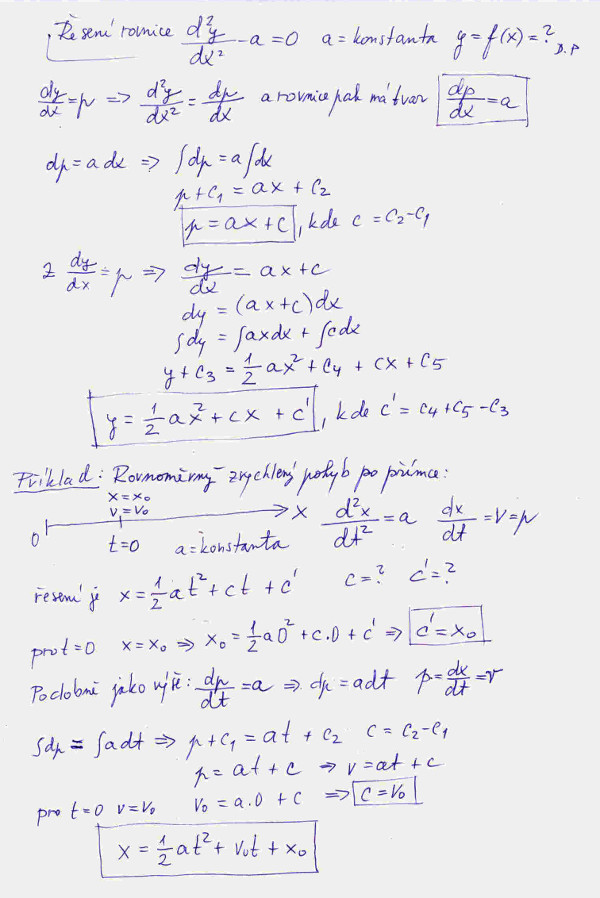 Řešení rovnice d²y/dx² - a = 0 a = konstanta y = f(x) = ? D.P
dy/dx = p => d²y/dx² = dp/dx a rovnice pak má tvar dp/dx = a
dp = a dx => ∫dp = a∫dx
p + c₁ = ax + c₂
p = ax + c, kde c = c₂ - c₁
Z dy/dx = p => dy/dx = ax + c
dy = (ax + c)dx
∫dy = ∫axdx + ∫cdx
y + c₃ = 1/2 ax² + c₄ + cx + c₅
y = 1/2 ax² + cx + c', kde c' = c₄ + c₅ - c₃
Příklad: Rovnoměrný zrychlený pohyb po přímce:
x = x₀
v = v₀
0 x d²x/dt² = a dx/dt = v = p
t = 0 a = konstanta
řešení je x = 1/2 at² + ct + c' c = ? c' = ?
pro t = 0 x = x₀ => x₀ = 1/2 a0² + c.0 + c' => c' = x₀
Podobně jako výše: dp/dt = a => dp = adt p = dx/dt = v
∫dp = ∫adt => p + c₁ = at + c₂ c = c₂ - c₁
p = at + c => v = at + c
pro t = 0 v = v₀ v₀ = a.0 + c => c = v₀
x = 1/2 at² + v₀t + x₀